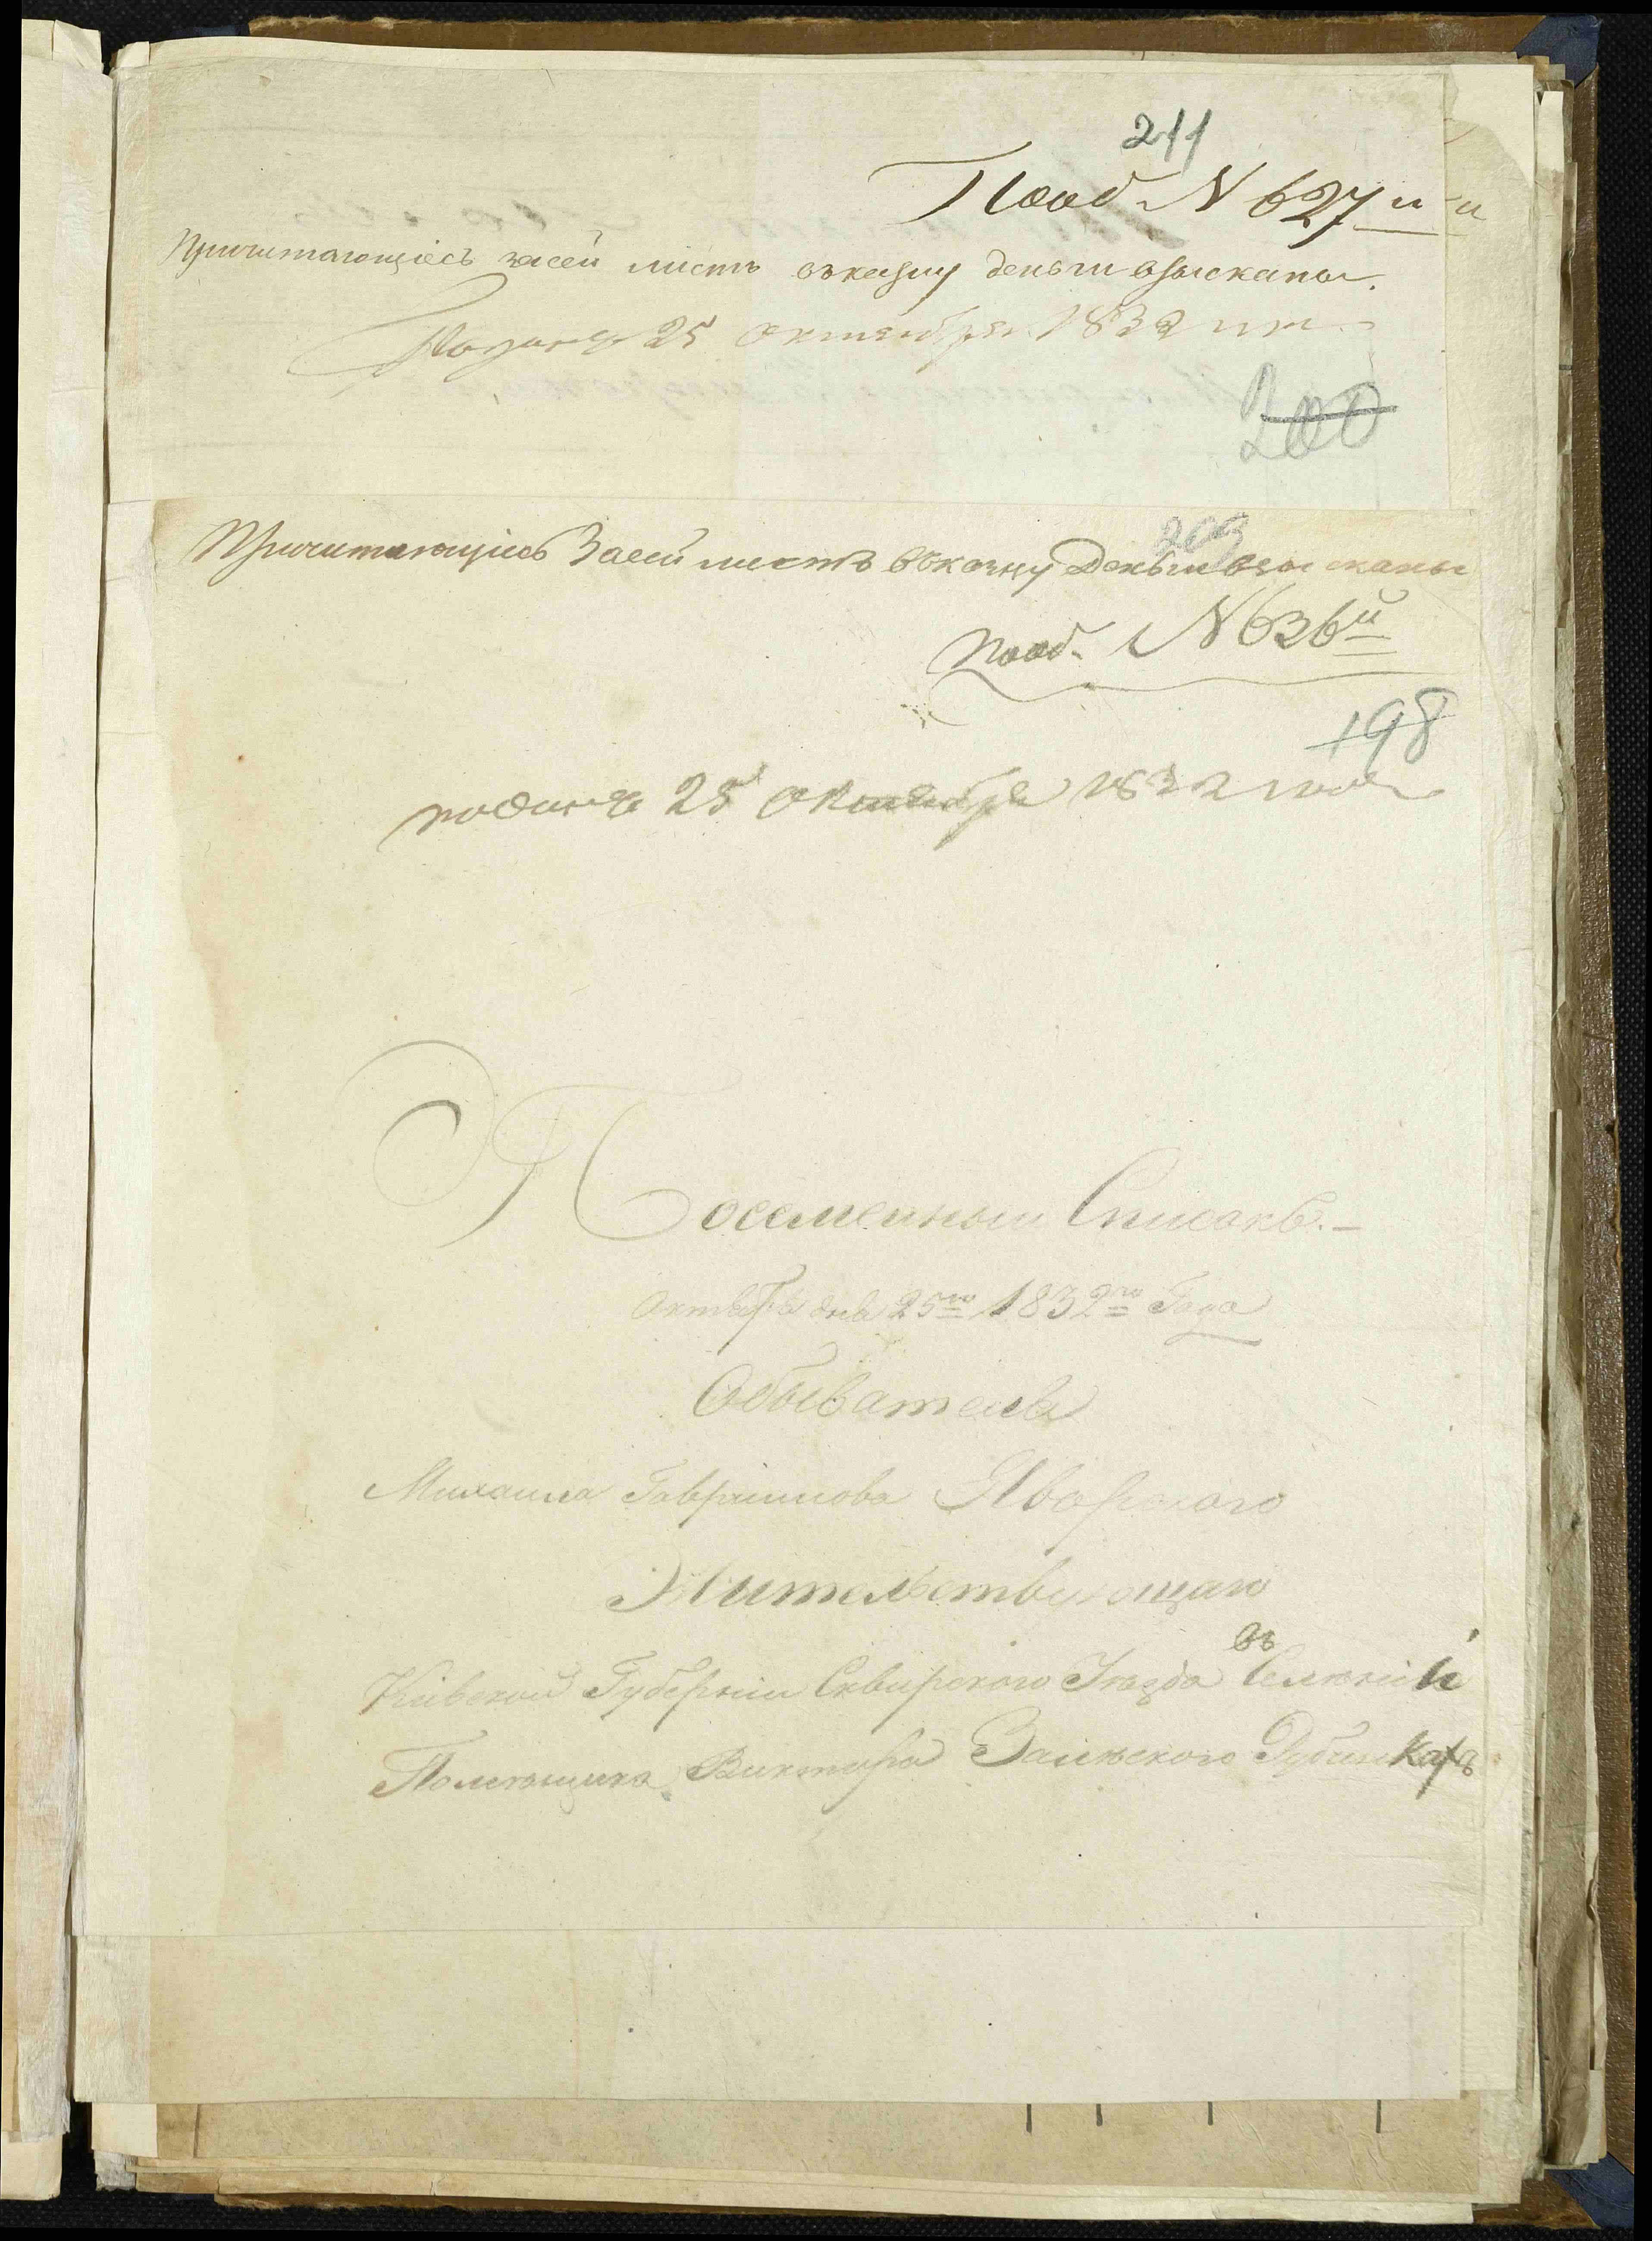 211
Пооб. N 627 й й
Причитающіесь засей листъ въказну деньги взысканы.
Подано 25 октября 1832 года
200
203
Причитающіесь Засей листъ въказну Деньги взысканы
Пооб. N 636й
198
подано 25 октября 1832 года
Посемейный Списокъ.–
Октября дня 25го 1832го Года
Обывателя
Михаила Гавриилова Яворского
Жительствующаго
въ
Кіевской Губерніи Сквирского Уезда
Помещика Виктора Залеского